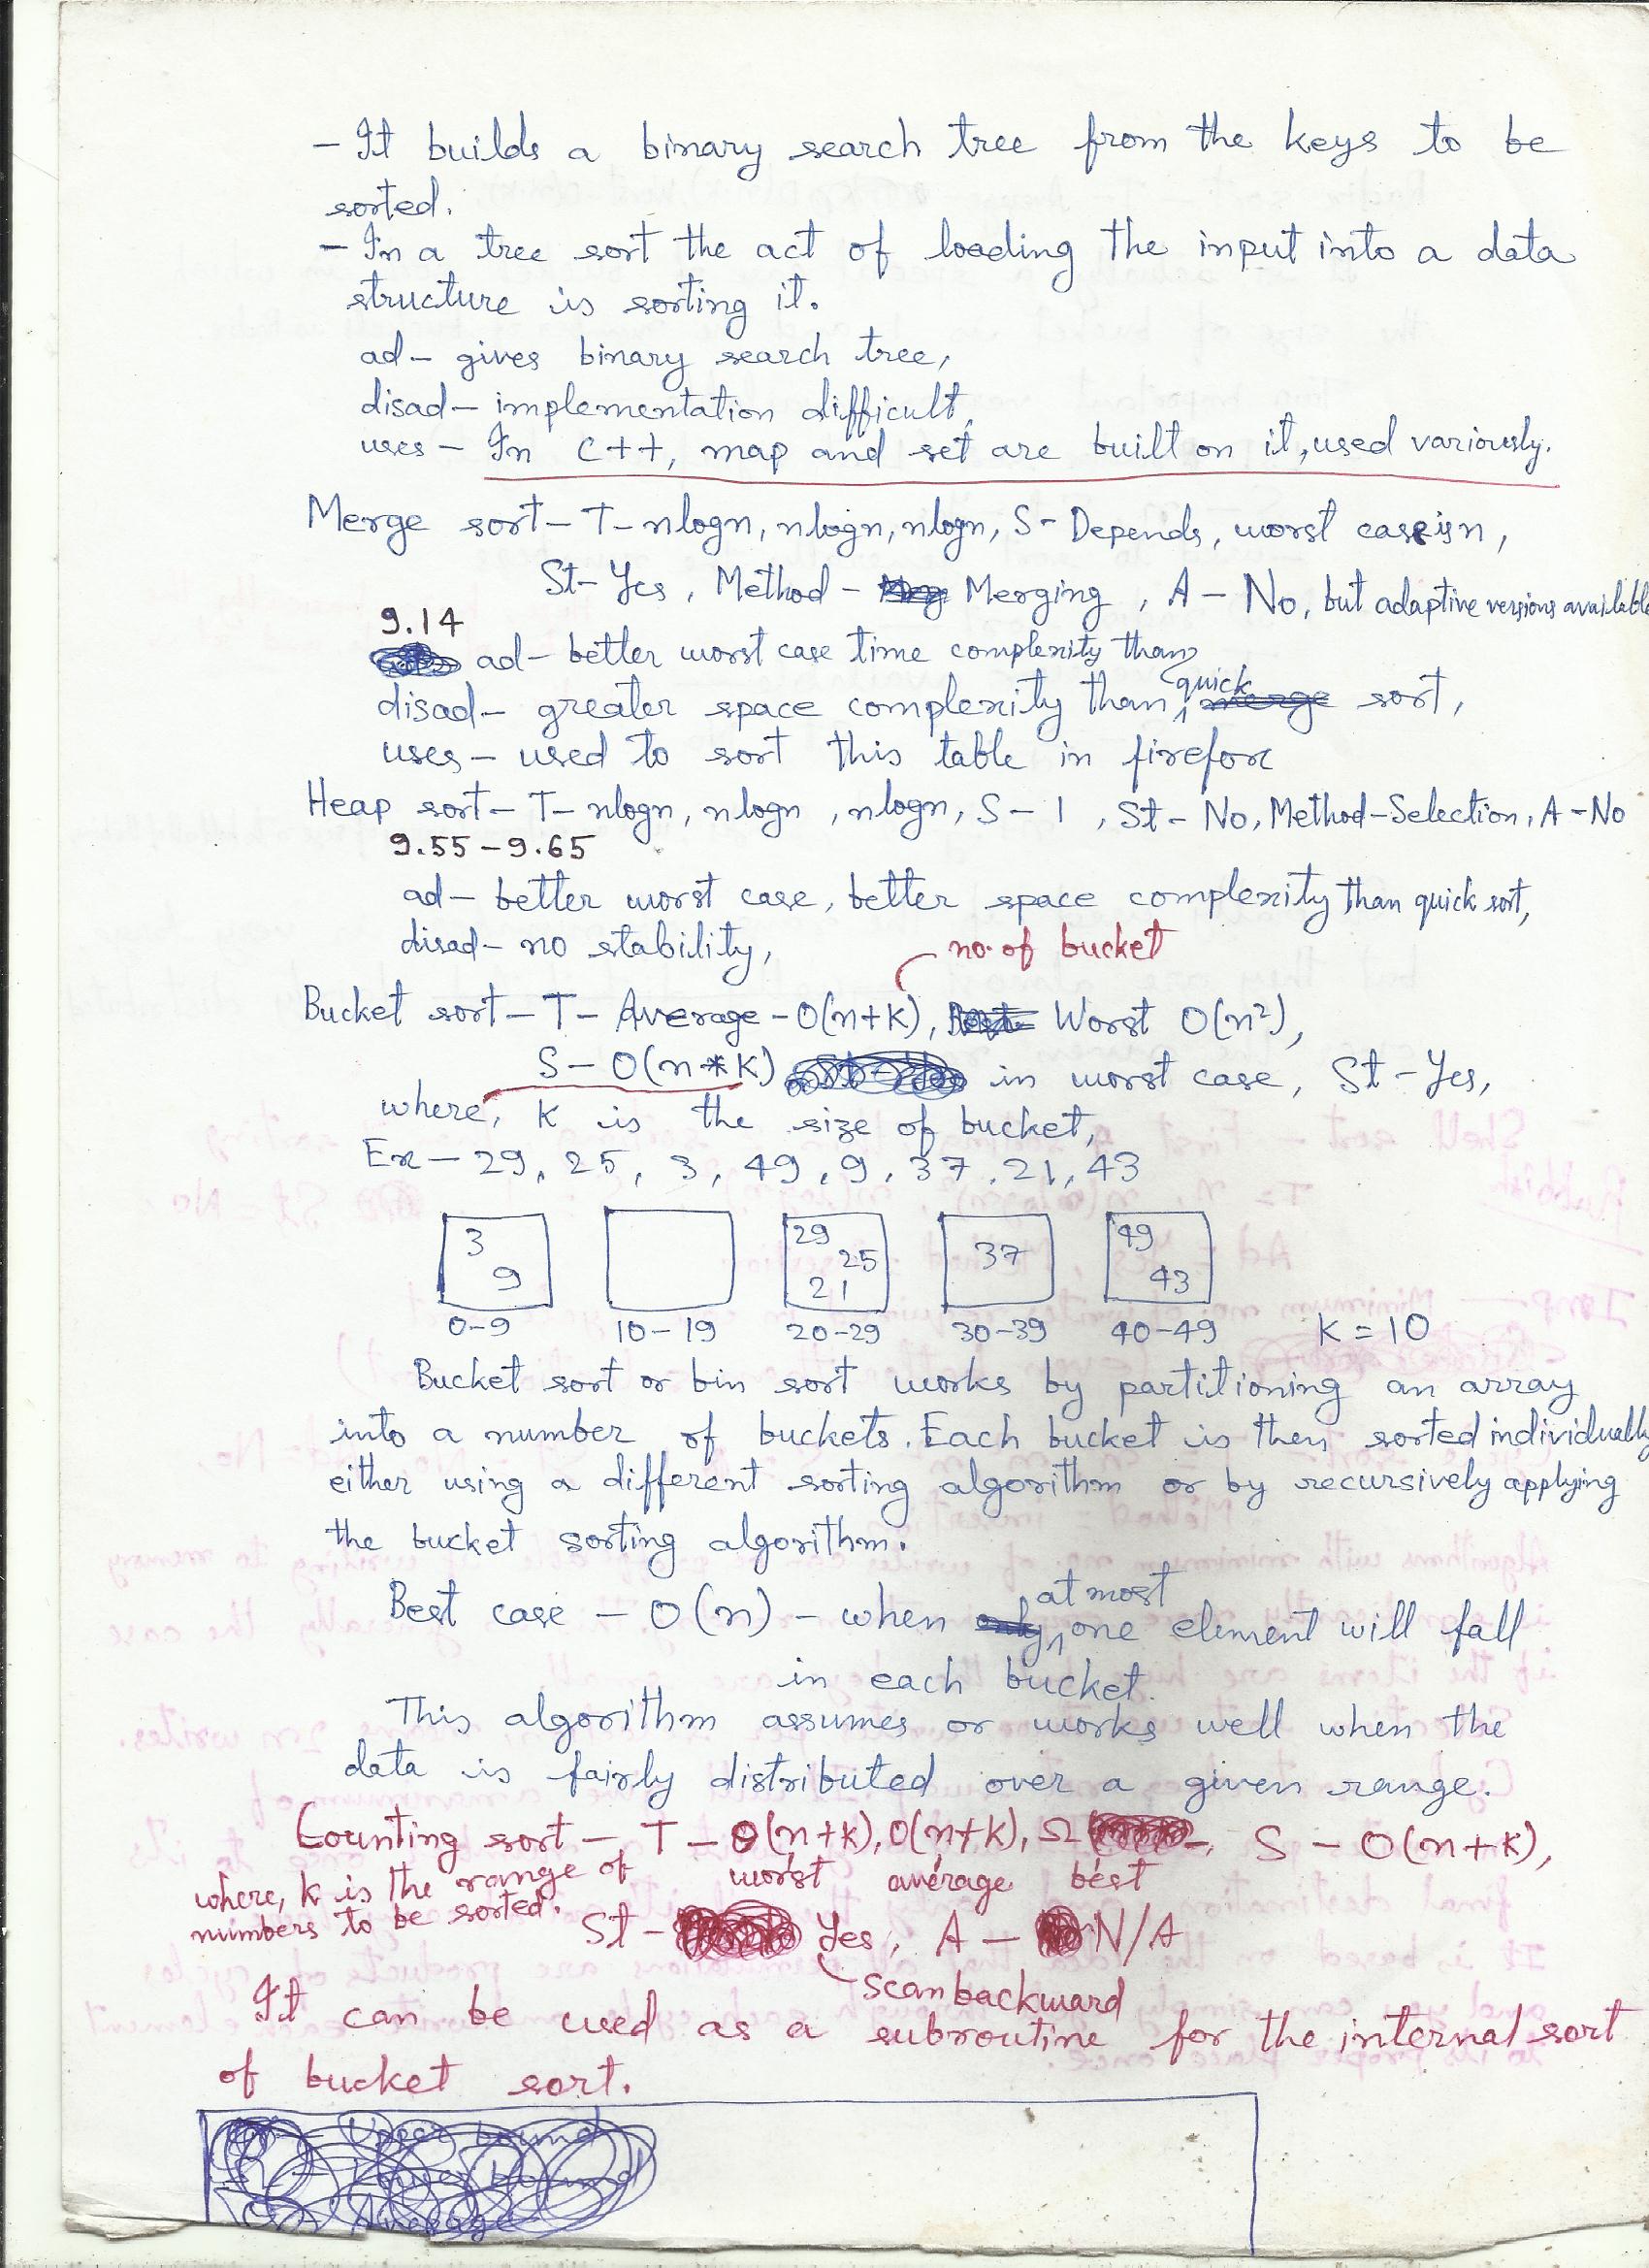 - It builds a binary search tree from the keys to be
sorted.
- In a tree sort the act of loading the input into a data
structure is sorting it.
ad - gives binary search tree,
disad - implementation difficult,
uses - In C++, map and set are built on it, used variously.
Merge sort - T - nlogn, nlogn, nlogn, S - Depends, worst case is n,
St - Yes, Method - Merging, A - No, but adaptive versions available
9.14
ad - better worst case time complexity than
quick
disad - greater space complexity than merge sort,
uses - used to sort this table in firefox
Heap sort - T - nlogn, nlogn, nlogn, S - 1, St - No, Method - Selection, A - No
9.55 - 9.65
ad - better worst case, better space complexity than quick sort,
disad - no stability,
no. of bucket
Bucket sort - T - Average - O(n+k), Worst O(n²),
S - O(n*k) in worst case, St - Yes,
where, k is the size of bucket,
Ex - 29, 25, 3, 49, 9, 37, 21, 43
3 9
29 25 21
37
49 43
0-9 10-19 20-29 30-39 40-49 K = 10
Bucket sort or bin sort works by partitioning an array
into a number of buckets. Each bucket is then sorted individually
either using a different sorting algorithm or by recursively applying
the bucket sorting algorithm.
at most
Best case - O(n) - when only one element will fall
in each bucket.
This algorithm assumes or works well when the
data is fairly distributed over a given range.
Counting sort - T - O(n+k), O(n+k), Ω -, S - O(n+k),
worst average best
where, k is the range of
numbers to be sorted.
St - Yes, A - N/A
scan backward
It can be used as a subroutine for the internal sort
of bucket sort.